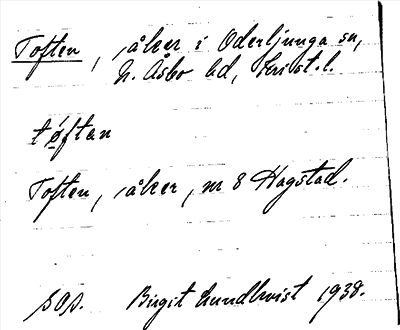 Toften, åker i Oderljunga sn,
N. Åsbo hd, Krist. l.
tøftan
Toften, åker, nr 8 Hagstad.
sas. Birgit Lundkvist 1938.